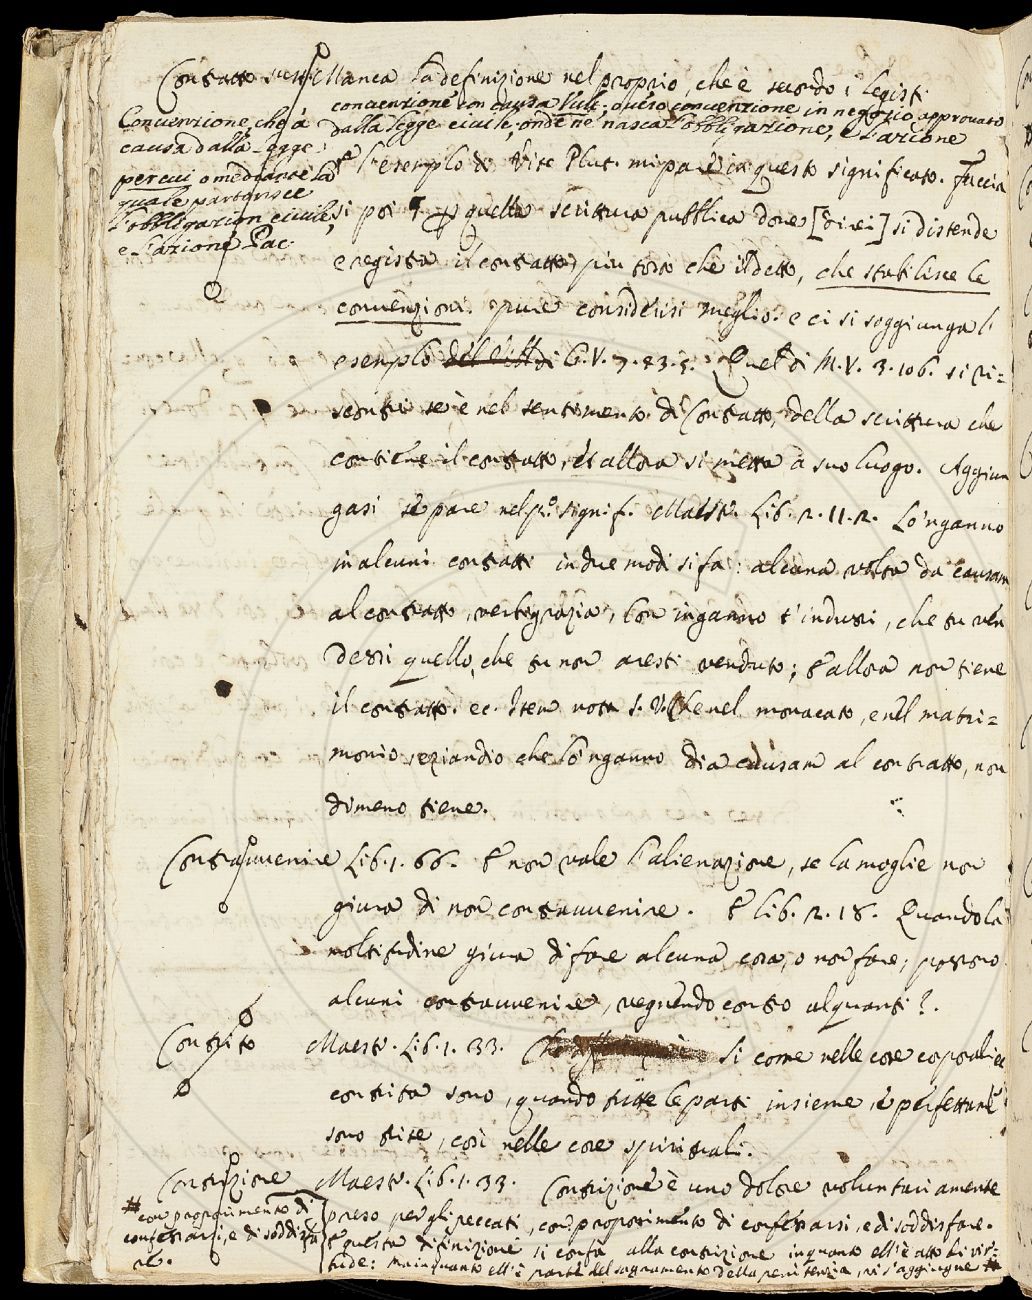 Contratto sust. Manca la definizione nel proprio, che è secondo i Legisti
convenzione con causa Vult: overo convenzione in negozio approvato
dalla legge civile, onde ne nasca l'obbligazione, e l'azione
Convenzione, che à
causa dalla legge
per cui o mediante la
quale partorisce
l'obbligazion civile,
e l'azione Pac.
l'esempio di Vite Plut. mi pare in questo significato. Faccia
si poi § quella scrittura pubblica dove [dirci] si distende
e registra il contratto, più tosto che il detto, che stabilisce le
convenzioni. pure considerisi meglio. e ci si soggiunga l'
esempio di G. V. 7. 23. 3. Quel di M. V. 3. 106. si ri=
scontri se è nel sentimento di Contratto, o della scrittura che
contiene il contratto, et allora si metta a suo luogo. Aggiun
gasi se pare nel pr.o signif. Maestr. Lib. 2. 11. 2. Lo 'nganno
in alcuni contratti in due modi si fa: alcuna volta dà causam
al contratto, verbigrazia, Con inganno t'indussi, che tu ven
dessi quello, che tu non aresti venduto; E allora non tiene
il contratto. ec. Item nota S. V. Che nel monacato, e nel matri=
monio, eziandio che lo 'nganno dia causam al contratto, non
dimeno tiene.
Contravvenire Lib. 1. 66. E non vale l'alienazione, se la moglie non
giura di non contravvenire. E lib. 2. 18. Quando la
moltitudine giura di fare alcuna cosa, o non fare, possono
alcuni contravvenire, vegnendo contro alquanti?
Contrito Maestr. Lib. 1. 33. Si come nelle cose corporali
contrita sono, quando tutte le parti insieme, e perfettam.e
sono trite, così nelle cose spirituali.
Contrizione Maestr. Lib. 1. 33. Contrizione è uno dolore voluntariamente
preso per gli peccati, con proponimento di confessarsi, e di soddisfare.
E questa difinizione si confà alla contrizione inquanto ell'è atto di vir=
tude: ma inquanto ell'è parte del sagramento della penitenzia, vi s'aggiugne #
# con proponimento di
confessarsi, e di soddisfa
re.